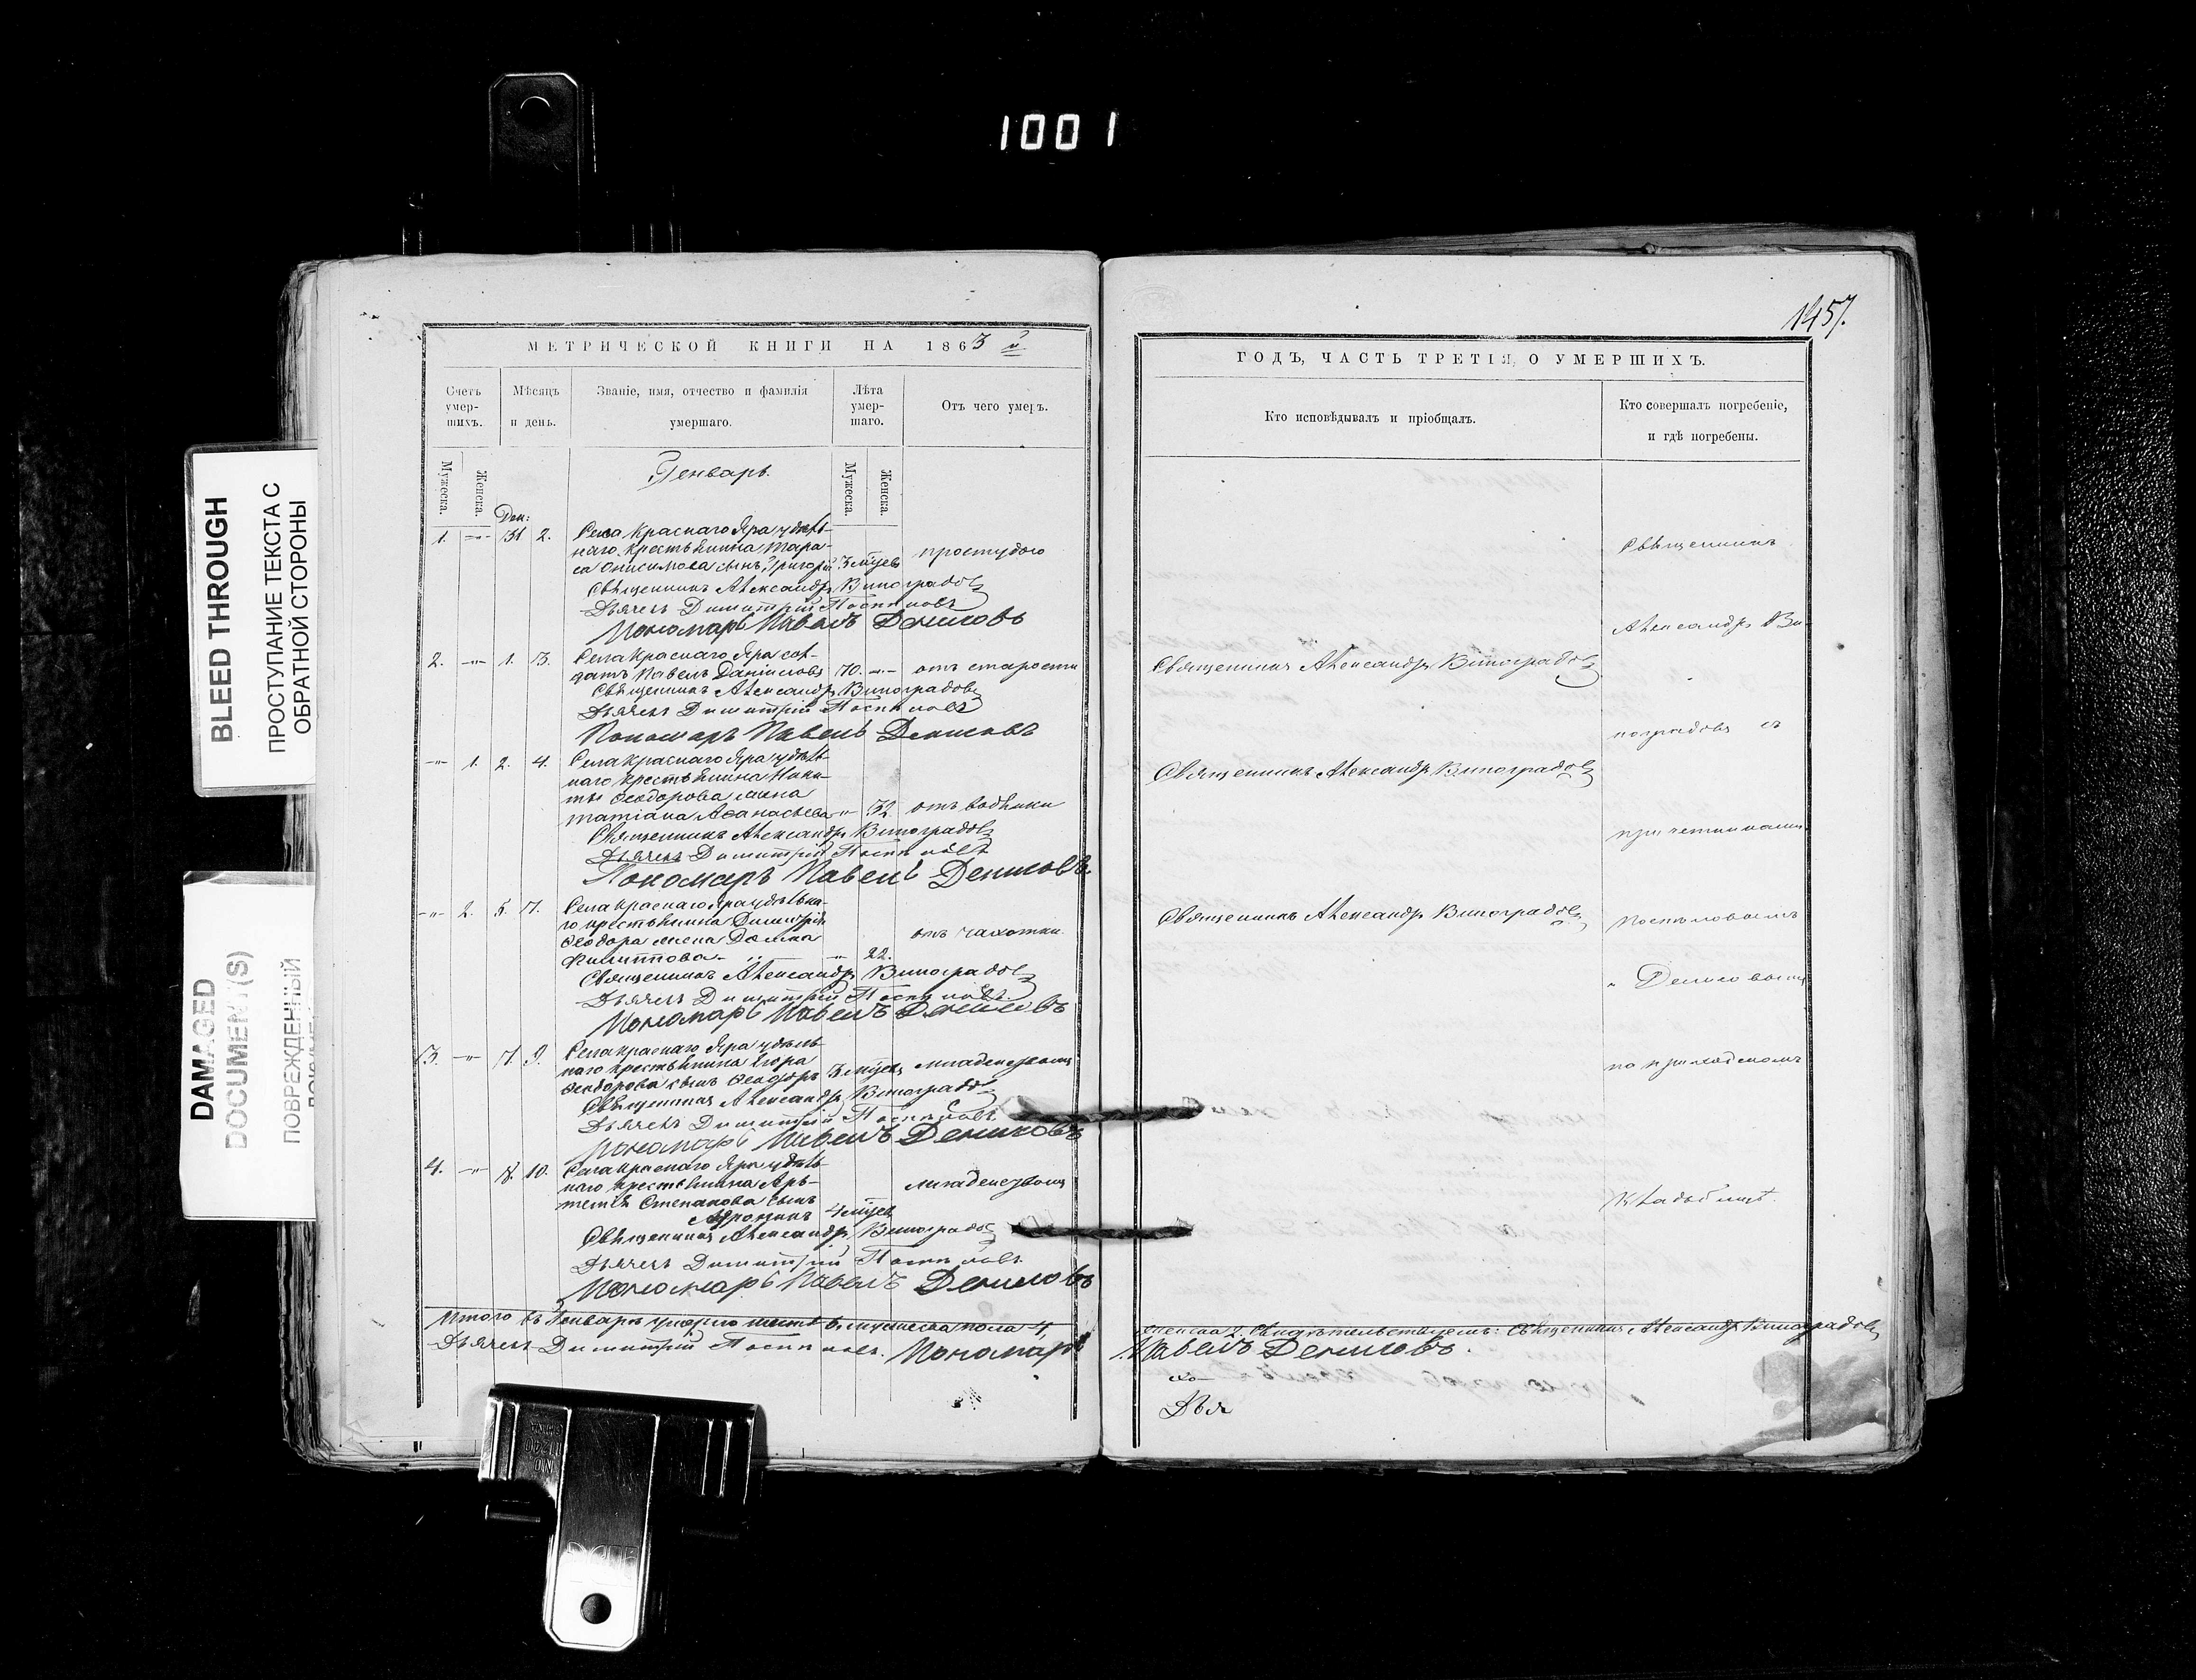 1001
BLEED THROUGH
ПРОСТУПАНИЕ ТЕКСТА С
ОБРАТНОЙ СТОРОНЫ
DAMAGED
DOCUMENT(S)
ПОВРЕЖДЕННЫЙ
МЕТРИЧЕСКОЙ КНИГИ НА 1863й
Счетъ умер- шихъ.
Мѣсяцъ и день.
Званіе, имя, отчество и фамилія умершаго.
Лѣта умер- шаго.
Отъ чего умеръ.
Мужеска.
Женска.
Генварь.
Мужеска.
Женска.
Дек:
1. -"- 31 2. Села Краснаго Яра удѣль-
наго крестьянина Тара-
са Онисимова сынъ, Григорій 3 мцевъ простудою
Священникъ Александръ Виноградовъ
Дьячекъ Димитрій Поспѣловъ
Пономарь Павелъ Денисовъ
2. -"- 1. 3. Села Краснаго Яра сол-
датъ Павелъ Даніиловъ 70. -"- отъ старости
Священникъ Александръ Виноградовъ
Дьячекъ Димитрій Поспѣловъ
Пономарь Павелъ Денисовъ
-"- 1. 2. 4. Села Краснаго Яра удѣль-
наго крестьянина Ники-
ты Ѳеодорова жена
Татіана Аѳанасьева -"- 32. отъ водянки
Священникъ Александръ Виноградовъ
Дьячекъ Димитрій Поспѣловъ
Пономарь Павелъ Денисовъ
-"- 2. 5. 7. Села Краснаго Яра удѣльна-
го крестьянина Димитрія
Ѳеодора жена Домна отъ чахотки
Филиппова -"- 22.
Священникъ Александръ Виноградовъ
Дьячекъ Димитрій Поспѣловъ
Пономарь Павелъ Денисовъ
3. -"- 7. 9. Села Краснаго Яра удѣль-
наго крестьянина Егора
Ѳеодорова сынъ Ѳеодоръ 3 мцевъ младенческою
Священникъ Александръ Виноградовъ
Дьячекъ Димитрій Поспѣловъ
Пономарь Павелъ Денисовъ
4. -"- 8. 10. Села Краснаго Яра удѣль-
наго крестьянина Ар-
темія Степанова сынъ младенческою
4 мцевъ
Священникъ Александръ Виноградовъ
Дьячекъ Димитрій Поспѣловъ
Пономарь Павелъ Денисовъ
Итого въ Генварѣ умерло шесть 6. мужеска пола 4,
Дьячекъ Димитрій Поспѣловъ. Пономарь
1457.
ГОДЪ, ЧАСТЬ ТРЕТІЯ, О УМЕРШИХЪ.
Кто исповѣдывалъ и пріобщалъ.
Кто совершалъ погребеніе,
и гдѣ погребены.
Священникъ
Александръ Ви-
Священникъ Александръ Виноградовъ
ноградовъ съ
Священникъ Александръ Виноградовъ
причетниками
Священникъ Александръ Виноградовъ
Поспѣловымъ
и Денисовымъ
на приходскомъ
кладбищѣ.
женска 2. Свидѣтельствуемъ: Священникъ Александръ Виноградовъ
Павелъ Денисовъ.
Дья